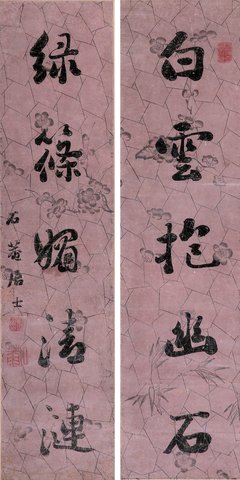 白雲抱幽石
緑篠媚清漣
石菴居士